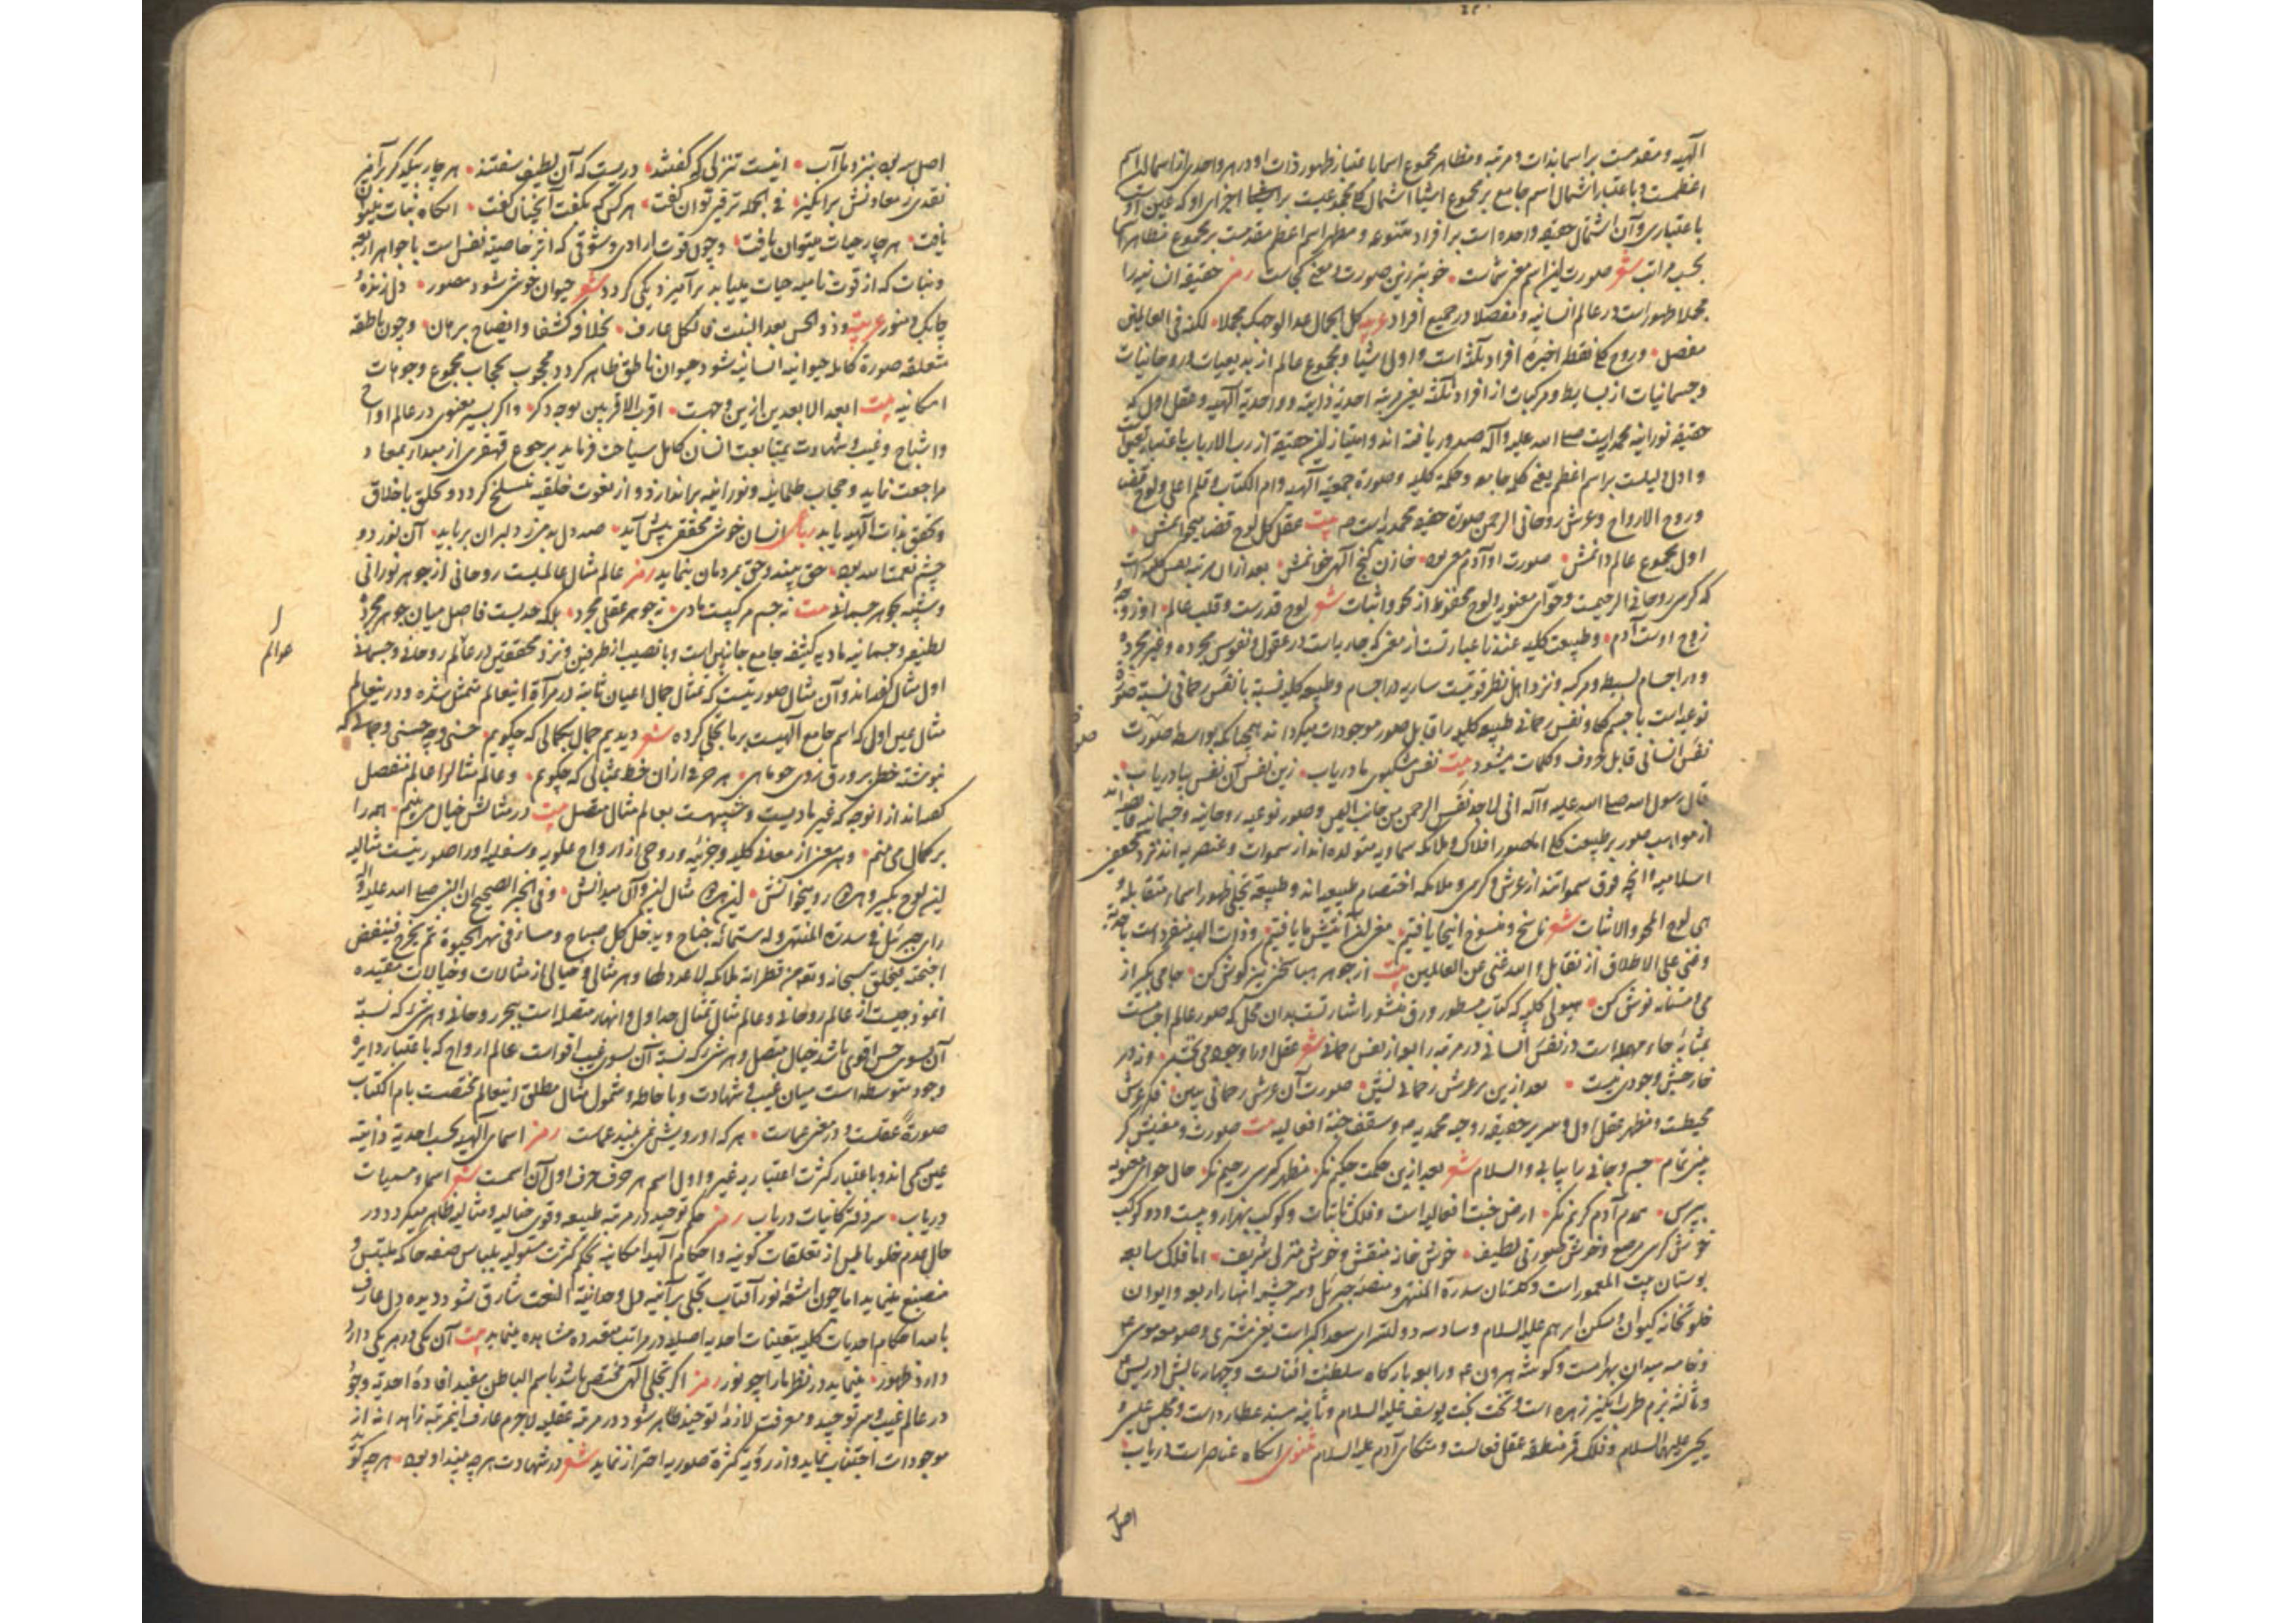 الهیه و مقدمست بر اسما بذات و مرتبه و مظاهر مجموع اسما باعتبار ظهور ذات او در هر واحدی از اسما
اعظمست و باعتبار اشتمال اسم جامع بر مجموع اسما اشتمال کل مجموعیست بر اجزای او که عین اوست
باعتباری و آن اشتمال حقیقه واحده است بر افراد متنوعه و مظهر اسم اعظم مقدمست بر مجموع مظاهر اسما
بحسب مراتب شعر صورت این اسم معنی ماست • خوبتر زین صورت و معنی کجاست رمز حقیقه انسانیه را
مجملا ظهوراست در عالم انسانیه و مفصلا در جمیع افراد عربیه کل الجمال غدا لوجهک مجملا • لکنه فی العالمین
مفصل • و روح کلی نقطه اخیره افراد ثلثه است و اولی اشیا و مجموع عالم از بدیعیات و روحانیات
و جسمانیات از بسایط و مرکبات از افراد ثلثه یعنی مرتبه احدیه ذاتیه و واحدیه الهیه و عقل اول که
حقیقه نورانیه محمدیست صلی الله علیه و آله صدور یافته اند و امتیاز این حقیقه از رب الارباب باعتبار تعین است
و ادل دلیلست بر اسم اعظم یعنی کلمه جامعه و حکمة کلیه و صورة جمعیه الهیه و ام الکتاب و قلم اعلی و لوح قضا
و روح الارواح و عرش روحانی الرحمن صورة حقیقه محمدیه است بیت عقل کل لوح قضا میخوانمش •
اول مجموع عالم دانمش • صورت او آدم معنی بود • خازن گنج الهی خوانمش • بعد ازان مرتبه نفس کلیه است
که کرسی روحانی الرحیمست و حوای معنویه و لوح محفوظ از محو و اثبات شعر لوح قدرست و قلب عالم او
زوج اوست آدم • و طبیعت کلیه عندنا عبارتست از معنی که جاریست در عقول و نفوس مجرده و غیر مجرده
و در اجسام بسیطه و مرکبه و نزد اهل نظر قوتیست ساریه در اجسام و طبیعه کلیه نسبة با نفس رحمانی نسبة صورة
نوعیه است با جسم کلی و نفس رحمانی طبیعه کلیه را قابل صور موجودات میگرداند همچنانکه بواسطه صورت
نفس انسانی قابل حروف و کلمات میشود بیت نفس مشکبوی ما دریاب • زین نفس آن نفس بیا دریاب •
قال رسول الله صلی الله علیه و آله انی لاجد نفس الرحمن من جانب الیمن و صور نوعیه روحانیه و جسمانیه
از مواهب صور بر طبیعت کلی اما صور افلاک و ملائکه سماویه متولده اند از سموات و عنصریه اند نزد محققین
اسلامیه و آنچه فوق سمواتند از عرش و کرسی و ملائکه اختصام طبیعیه اند و طبیعه تجلی ظهور اسماء متقابله و
هی لوح المحو و الاثبات شعر ناسخ و منسوخ اینجا یافتیم • معنی این آیتش ما یافتیم • و ذات الهیه منفرد است
و غنی علی الاطلاق از تقابل و الله غنی عن العالمین بیت از جوهر هبا سخن نیز گوش کن • جامی بگیر از
می مستانه نوش کن • هیولی کلیه که کتاب مسطور و رق منشور اشارتست بدان محل که صور عالم اجسامست
بمثابه حاء مهمله است در نفس انسانی در مرتبه رابعه از نفس رحمانی شعر عقل او را وجود می بخشد • ورنه در
خارجش وجودی نیست • بعد ازین بر عرش رحمانی نشین • صورت آن عرش رحمانی ببین • فلک عرش
محیطست و مظهر عقل اول و سریر حقیقه روحیه محمدیه و سقف جنة افعالیه بیت صورت و معنیش نگر
بنگر تمام • جسم و جانی را بیابی والسلام شعر بعد ازین حکمت حکیم نگر • مظهر کرسی رحیم نگر • حال حوای معنویه
بپرس • همدم آدم کریم نگر • ارض جنت افعالیه است و فلک ثابتات و کوکب بهزار و بیست و دو کوکب
خوش کرسی مرصع و خوش صورتی لطیف • خوش خانه منقش و خوش منزلی شریف • اما فلک سابعه
بوستان بیت المعمور است و گلستان سدرة المنتهی و منصه جبرئیل و سرچشمه انهار اربعه و ایوان
خلوتخانه کیوان و مسکن ابراهیم علیه السلام و سادسه دولتسرای سعد اکبر است یعنی مشتری و صومعه موسی
و خامسه میدان بهرامست و گوشه هرون و رابعه بارگاه سلطنت آفتابست و چهار بالش ادریس
و ثالثه بزم طرب انگیز زهره است و تخت بخت یوسف علیه السلام و ثانیه مسند عطارد است و مجلس عیسی و
یحیی علیهما السلام و فلک قمر منطقه عقل فعالست و متکای آدم علیه السلام مثنوی آنگاه عناصر است دریاب •
اصل
اصل همه بود بنزد ما آب • اینست تنزلی که گفتند • دریست که آن لطیف سفتند • هر چار بیکدیگر برآمیز
نقدی ز معادنش برانگیز • فی الجمله ترقیی توان گفت • هر کس که بگفت آنچنان گفت • آنگاه نبات میتوان
یافت • هر چار حیات میتوان یافت • و چون قوت ارادی و شوقی که اثر خاصیة نفس است با جواهر اربعه
و نبات که از قوت نامیه حیات مییابد برآمیزد یکی گردد شعر حیوان خوشی شود مصور • دل زنده
چابک و منور عربیه و ذو الحس بعد النبت فالکل عارف • بخلاقه کشفا و ایضاح برهان • و چون ناطقه
متعلقه صورة کامله حیوانیه انسانیه شود حیوان ناطق ظاهر گردد محجوب بحجاب مجموع وجوهات
امکانیه بیت ابعد الابعدین ازین وجهست • اقرب الاقربین بوجه دگر • و اگر بسیر معنوی در عالم ارواح
و اشباح و غیب و شهادت بمتابعت انسان کامل سیاحت فرماید برجوع قهقری از مبدا بمعاد
مراجعت نماید و حجاب ظلمانیه و نورانیه براندازد و از نعوت خلقیه منسلخ گردد و تخلق باخلاق
و تحقق بذات الهیه یابد رباعی انسان خوشی محققی پیش آید • صد دل بدمی ز دلبران برباید • آن نور دو
چشم نعمت الله بود • حق بیند و حق بمردمان بنماید رمز عالم مثال عالمیست روحانی از جوهر نورانی
و شبیه بجوهر جسمانی بیت نه جسم مرکبیست مادی • نه جوهر عقلی مجرد • بلکه حدیست فاصل میان جوهر مجرده
لطیفه و جسمانیه مادیه کثیفه جامع جانبین است و با نصیب از طرفین و نزد محققین در عالم روحانی و جسمانی
عوالم
اول مثال گفته اند و آن مثال صوریتست که مثال جمال اعیان ثابته در مرآة اینعالم متمثل شده و در اینعالم
مثال عین اول که اسم جامع الهیست بر ما تجلی کرده شعر دیدیم جمال بکمالی که چگویم • حسنی و چه حسنی و جمالی که
نبوشته خطی بر ورق روی چو ماهی • هر حرف ازان خط بمثالی که چگویم • و عالم مثال را عالم منفصل
گفته اند از آنوجه که غیر مادیست و شبیهست بعالم مثال متصل بیت در مثالش خیال می بینم • همه را
بر کمال می بینم • و هر معنی از معانی کلیه و جزئیه و روحی از ارواح علویه و سفلیه او را صوریتست مثالیه
این لوح بگیر و بود رو میخوانش • این بود مثال این و آن میدانش • و فی الخبر الصحیح ان النبی صلی الله علیه و آله
رای جبرئیل فی سدرة المنتهی و له ستمائه جناح و یدخل کل صباح و مساء فی نهر الحیوة ثم یخرج فینفض
اجنحته فیخلق سبحانه و تعالی من قطراته ملائکه لا عدد لها و هر مثالی و خیالی از مثالات و خیالات مقیده
انموذجیست از عالم روحانی و عالم مثال تمثال جداول و انهار متصله است ببحر روحانی و هر شیء که نسبة
آن بسوی حس اقوی باشد خیال متصل و هر شیء که نسبة آن بسوی غیب اقواست عالم ارواح که باعتبار دایره
وجود متوسطه است میان غیب و شهادت و باحاطه و شمول مثال مطلق اینعالم مختصست بام الکتاب
صورة عقلست و در معنی عماست • هر که او رویش نمی بیند عماست رمز اسمای الهیه بحسب احدیة ذاتیه
عین یکی اند و باعتبار کثرت اعتباریه غیر و اول اسم هر حرف حرف اول آن اسمست شعر اسما و مسمیات
دریاب • سر دفتر کاینات دریاب رمز حکم توحید در مرتبه طبیعه و قوی خیالیه و مثالیه ظاهر میگردد و در
حال عدم خلو باطن از تعلقات کونیه و احکام الهیه امکانیه بحکم کثرت مستولیه بلباس صفه حاکمه ملتبس و
منصبغ مینماید اما چون اشعه نور آفتاب تجلی بر آئینه دل وحدانیة النعت شارق شود دیده دل عارف
با صد احکام احدیات کلیه بتعینات احدیه اصلیه در مراتب متعدده مشاهده مینماید بیت آن یکی در هر یکی
دارد ظهور • مینماید در نظر ما را چو نور رمز اگر تجلی الهی مختص باشد باسم الباطن مفید افاده احدیة وجود
در عالم غیب و سر توحید و معرفت لازم توحید ظاهر شود در مرتبه عقلیه لاجرم عارف اینمرتبه زاهدانه از
موجودات اجتناب نماید و از رؤیة کثرة صوریه احتراز نماید شعر در شهادت هر چه بیند او بود • هر چه گوید